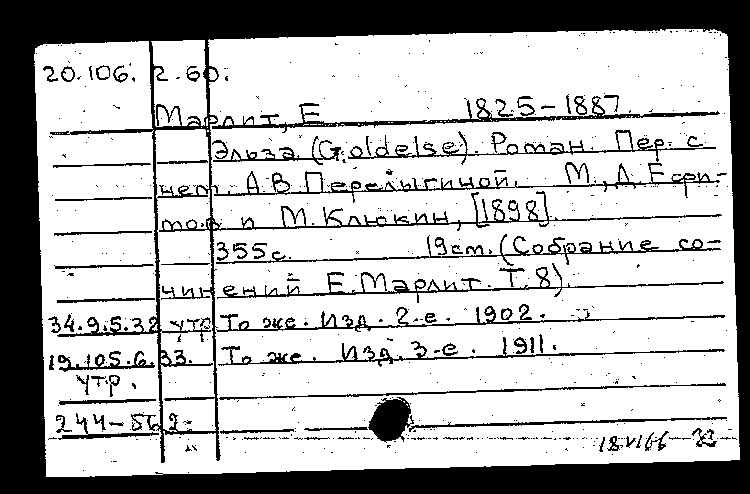 20.106.2.60.
Марлит, Е 1825-1887
Эльза. (Goldelse). Роман. Пер. с
нем. А.В. Перелыгиной. М., Д. Ефи-
мов и М. Клюкин, [1898].
355 с. 19 см. (Собрание со-
чинений Е. Марлит. Т. 8)
34.9.5.32 утр То же. Изд. 2-е. 1902.
19.105.6.33. То же. Изд. 3-е. 1911.
утр.
244-562